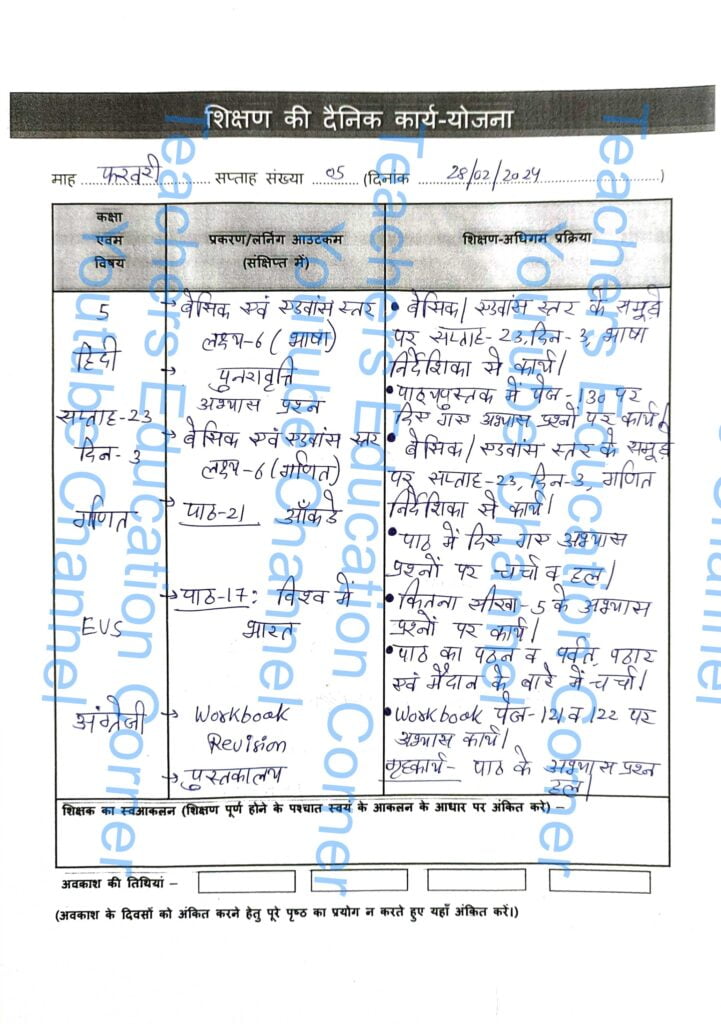 शिक्षण की दैनिक कार्य-योजना
माह फरवरी सप्ताह संख्या 05 (दिनांक 28/02/2024)
कक्षा
एवम
विषय
प्रकरण/लर्निंग आउटकम
(संक्षिप्त में)
शिक्षण-अधिगम प्रक्रिया
5
हिंदी
सप्ताह-23
दिन-3
→ बेसिक एवं एडवांस स्तर
लक्ष्य-6 (भाषा)
→ पुनरावृत्ति
अभ्यास प्रश्न
• बेसिक/एडवांस स्तर के समूहों
पर सप्ताह-23, दिन-3, भाषा
निर्देशिका से कार्य।
• पाठ्यपुस्तक में पेज-130 पर
दिए गए अभ्यास प्रश्नों पर कार्य।
गणित
→ बेसिक एवं एडवांस स्तर
लक्ष्य-6 (गणित)
→ पाठ-21 आँकडे
• बेसिक/एडवांस स्तर के समूहों
पर सप्ताह-23, दिन-3, गणित
निर्देशिका से कार्य।
• पाठ में दिए गए अभ्यास
प्रश्नों पर चर्चा व हल।
EVS
→ पाठ-17: विश्व में
भारत
• कितना सीखा-5 के अभ्यास
प्रश्नों पर कार्य।
• पाठ का पठन व पर्वत, पठार
एवं मैदान के बारे में चर्चा।
अंग्रेजी
→ Workbook
Revision
→ पुस्तकालय
• Workbook पेज-121 व 122 पर
अभ्यास कार्य।
गृहकार्य- पाठ के अभ्यास प्रश्न
हल।
शिक्षक का स्वआकलन (शिक्षण पूर्ण होने के पश्चात स्वयं के आकलन के आधार पर अंकित करे) –
अवकाश की तिथियां –
(अवकाश के दिवसों को अंकित करने हेतु पूरे पृष्ठ का प्रयोग न करते हुए यहाँ अंकित करें।)
Teachers Education Corner
Youtube Channel
Teachers Education Corner
Youtube Channel
Teachers Education Corner
Youtube Channel